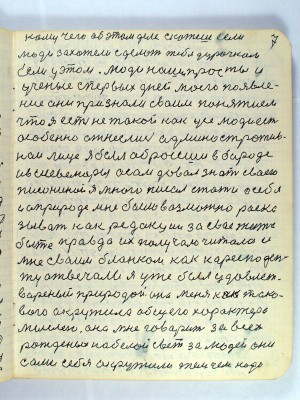 кому чего об этом деле скотеш если 7
люди захотели сделат тебя дурочком
если у этом. люди наши просты и
ученые с первых дней моего появле-
ние они признали своим понятием
что я есть не такой как усе люди ест
особенно отнеслис администротив-
ном лице я был оброссши в бороде
овал знат своего
я много писал стати о себя
и о природе мне было возможно раска
зыват как редакции за свае жить
быте правда их получали читали и
мне своим бланком как каресподен-
ту отвечали я уже был удовлет-
вареный природой она меня как тако-
вого окружила общего характера
мыслею, она мне говарит за всех
рожденых на белой свет за людей они
сами себя окружили тем чем надо